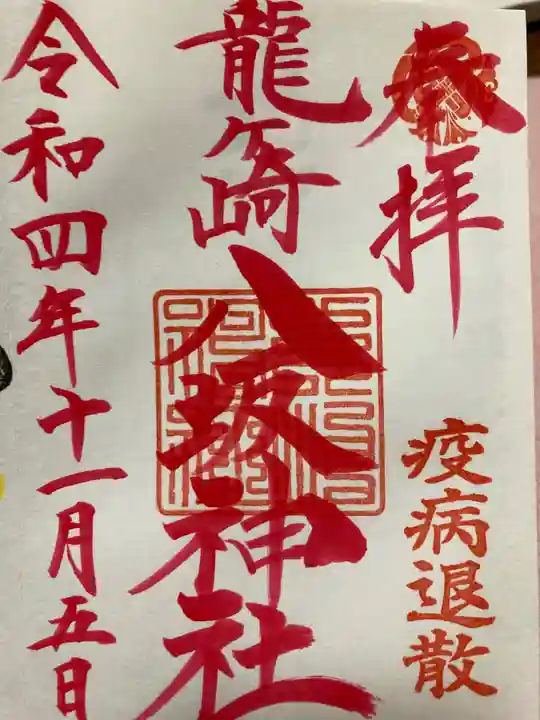 奉拝
疫病退散
龍ヶ崎
八坂神社
令和四年十一月五日